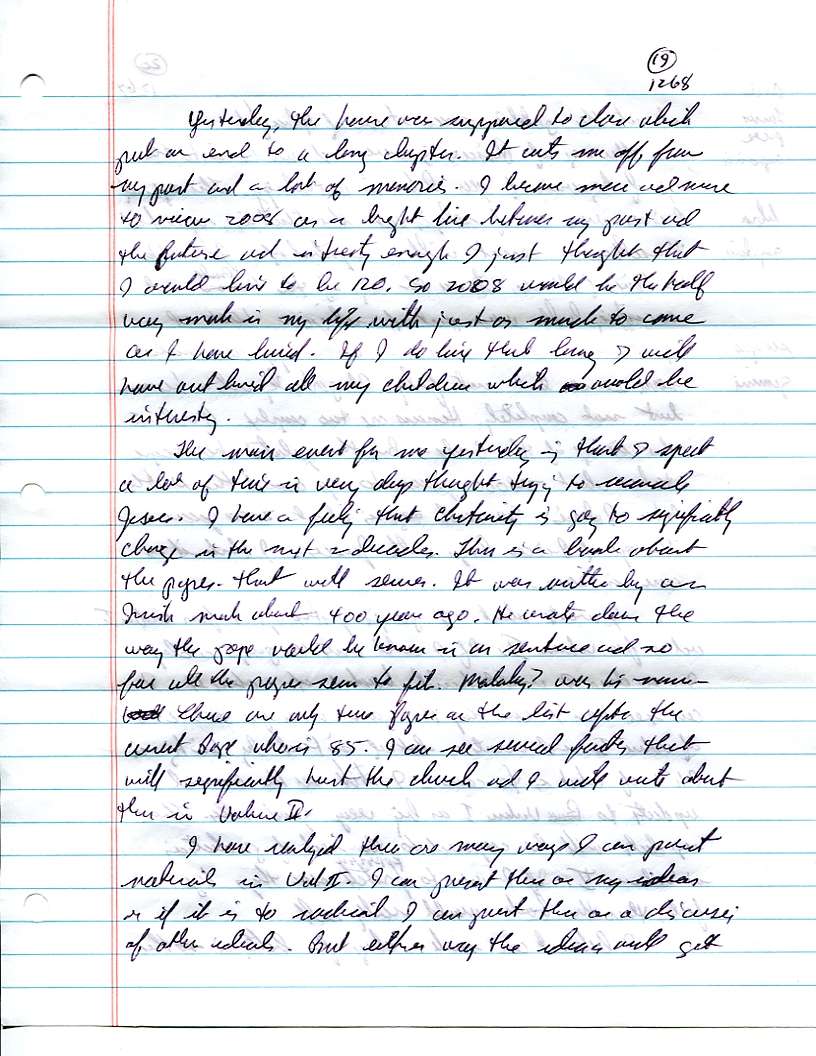 19
1268
Yesterday, the house was supposed to close which
put an end to a long chapter. It cuts me off from
my past and a lot of memories. I become more and more
to view 2008 as a bright line between my past and
the future and interesty enough I just thought that
I would live to be 120. So 2008 would be the half
way mark in my life with just as much to come
as I have lived. If I do live that long I will
have outlived all my children which would be
interesty.
The main event for me yesterday is that I spent
a lot of time in very deep thought trying to
Jesus. I have a feeling that Christianity is going to significantly
change in the next 2 decades. There is a book about
the popes that will serve. It was written by an
Irish monk about 400 years ago. He wrote down the
way the pope would be known in a sentence and so
far all the popes seem to fit. Malaky? was his name
There are only two Popes on the list after the
current Pope who is 85. I can see several factors that
will significantly hurt the church and I will write about
this in Volume II.
I have realized there are many ways I can present
materials in Vol II. I can present them as my ideas
or if it is to radical I can present them as a discussi
of other ideals. But either way the ideas will get